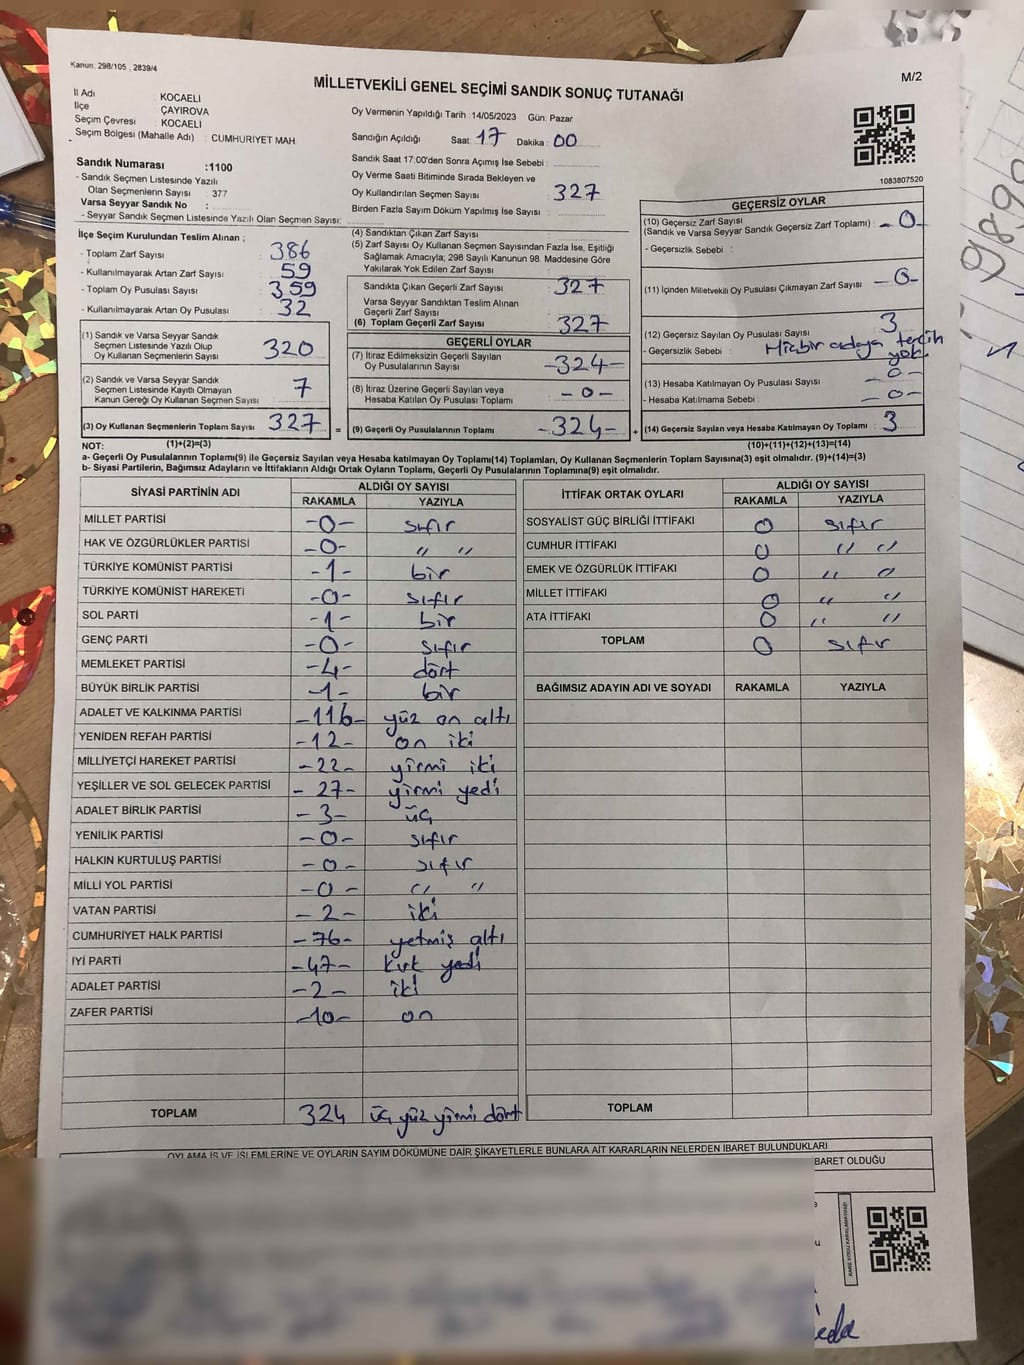 Kanun: 298/105 , 2839/4
M/2
MİLLETVEKİLİ GENEL SEÇİMİ SANDIK SONUÇ TUTANAĞI
İl Adı : KOCAELİ
İlçe : ÇAYIROVA
Seçim Çevresi : KOCAELİ
Seçim Bölgesi (Mahalle Adı) : CUMHURİYET MAH
Sandık Numarası :1100
- Sandık Seçmen Listesinde Yazılı
Olan Seçmenlerin Sayısı : 377
Varsa Seyyar Sandık No :
- Seyyar Sandık Seçmen Listesinde Yazılı Olan Seçmen Sayısı:
Oy Vermenin Yapıldığı Tarih :14/05/2023 Gün: Pazar
Sandığın Açıldığı Saat: 17 Dakika : 00
Sandık Saat 17:00'den Sonra Açımış İse Sebebi :
Oy Verme Saati Bitiminde Sırada Bekleyen ve
Oy Kullandırılan Seçmen Sayısı : 327
Birden Fazla Sayım Döküm Yapılmış İse Sayısı :
1083807520
İlçe Seçim Kurulundan Teslim Alınan ;
- Toplam Zarf Sayısı : 386
- Kullanılmayarak Artan Zarf Sayısı : 59
- Toplam Oy Pusulası Sayısı : 359
- Kullanılmayarak Artan Oy Pusulası : 32
(1) Sandık ve Varsa Seyyar Sandık
Seçmen Listesinde Yazılı Olup
Oy Kullanan Seçmenlerin Sayısı : 320
(2) Sandık ve Varsa Seyyar Sandık
Seçmen Listesinde Kayıtlı Olmayan
Kanun Gereği Oy Kullanan Seçmen Sayısı : 7
(3) Oy Kullanan Seçmenlerin Toplam Sayısı : 327 =
(4) Sandıktan Çıkan Zarf Sayısı :
(5) Zarf Sayısı Oy Kullanan Seçmen Sayısından Fazla İse, Eşitliği
Sağlamak Amacıyla; 298 Sayılı Kanunun 98. Maddesine Göre
Yakılarak Yok Edilen Zarf Sayısı :
Sandıkta Çıkan Geçerli Zarf Sayısı : 327
Varsa Seyyar Sandıktan Teslim Alınan
Geçerli Zarf Sayısı :
(6) Toplam Geçerli Zarf Sayısı : 327
GEÇERLİ OYLAR
(7) İtiraz Edilmeksizin Geçerli Sayılan
Oy Pusulasının Sayısı : -324-
(8) İtiraz Üzerine Geçerli Sayılan veya
Hesaba Katılan Oy Pusulası Toplamı : -0-
(9) Geçerli Oy Pusulalarının Toplamı : -324- +
GEÇERSİZ OYLAR
(10) Geçersiz Zarf Sayısı
(Sandık ve Varsa Seyyar Sandık Geçersiz Zarf Toplamı) : -0-
- Geçersizlik Sebebi :
(11) İçinden Milletvekili Oy Pusulası Çıkmayan Zarf Sayısı : -0-
(12) Geçersiz Sayılan Oy Pusulası Sayısı : 3
- Geçersizlik Sebebi : Hiçbir adaya tercih
yok
(13) Hesaba Katılmayan Oy Pusulası Sayısı : -0-
- Hesaba Katılmama Sebebi : -0-
(14) Geçersiz Sayılan veya Hesaba Katılmayan Oy Toplamı : 3
NOT: (1)+(2)=(3) (10)+(11)+(12)+(13)=(14)
a- Geçerli Oy Pusulalarının Toplamı(9) ile Geçersiz Sayılan veya Hesaba katılmayan Oy Toplamı(14) Toplamları, Oy Kullanan Seçmenlerin Toplam Sayısına(3) eşit olmalıdır. (9)+(14)=(3)
b- Siyasi Partilerin, Bağımsız Adayların ve İttifakların Aldığı Ortak Oyların Toplamı, Geçerli Oy Pusulalarının Toplamına(9) eşit olmalıdır.
SİYASİ PARTİNİN ADI ALDIĞI OY SAYISI
RAKAMLA YAZIYLA
MİLLET PARTİSİ -0- sıfır
HAK VE ÖZGÜRLÜKLER PARTİSİ -0- " "
TÜRKİYE KOMÜNİST PARTİSİ -1- bir
TÜRKİYE KOMÜNİST HAREKETİ -0- sıfır
SOL PARTİ -1- bir
GENÇ PARTİ -0- sıfır
MEMLEKET PARTİSİ -4- dört
BÜYÜK BİRLİK PARTİSİ -1- bir
ADALET VE KALKINMA PARTİSİ -116- yüz on altı
YENİDEN REFAH PARTİSİ -12- on iki
MİLLİYETÇİ HAREKET PARTİSİ -22- yirmi iki
YEŞİLLER VE SOL GELECEK PARTİSİ -27- yirmi yedi
ADALET BİRLİK PARTİSİ -3- üç
YENİLİK PARTİSİ -0- sıfır
HALKIN KURTULUŞ PARTİSİ -0- sıfır
MİLLİ YOL PARTİSİ -0- " "
VATAN PARTİSİ -2- iki
CUMHURİYET HALK PARTİSİ -76- yetmiş altı
İYİ PARTİ -47- kırk yedi
ADALET PARTİSİ -2- iki
ZAFER PARTİSİ -10- on
TOPLAM 324 üç yüz yirmi dört
İTTİFAK ORTAK OYLARI ALDIĞI OY SAYISI
RAKAMLA YAZIYLA
SOSYALİST GÜÇ BİRLİĞİ İTTİFAKI 0 sıfır
CUMHUR İTTİFAKI 0 " "
EMEK VE ÖZGÜRLÜK İTTİFAKI 0 " "
MİLLET İTTİFAKI 0 " "
ATA İTTİFAKI 0 " "
TOPLAM 0 sıfır
BAĞIMSIZ ADAYIN ADI VE SOYADI RAKAMLA YAZIYLA
TOPLAM
OYLAMA İŞ VE İŞLEMLERİNE VE OYLARIN SAYIM DÖKÜMÜNE DAİR ŞİKAYETLERLE BUNLARA AİT KARARLARIN NELERDEN İBARET BULUNDUKLARI
BARET OLDUĞU